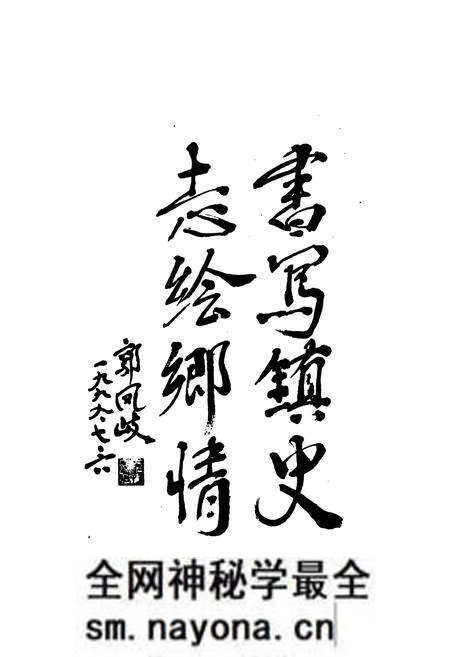 書写鎮史
志绘鄉情
郭凤岐
一九九九.七.六
全网神秘学最全
sm.nayona.cn